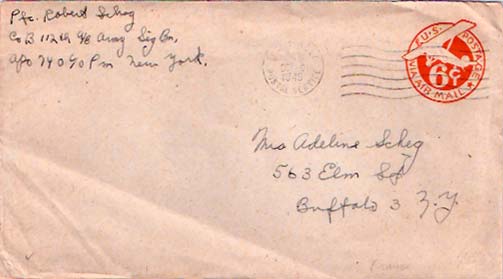 Pfc. Robert Scheg
Co B 112th Army Sig Bn.
APO 740 c/o Pm New York.
1945
POSTAL SERVICE
U.S. POSTAGE
6¢
VIA AIR MAIL
Mrs Adeline Scheg
563 Elm St
Buffalo 3 N.Y.
France